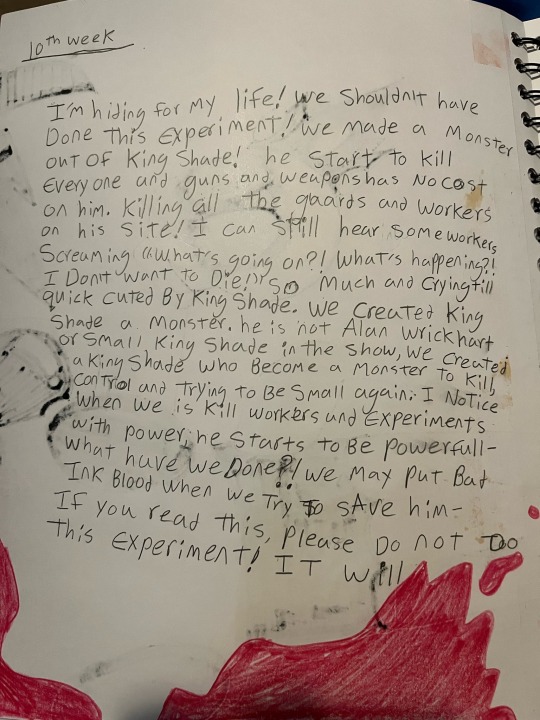 10th week
I'm hiding for my life! we shouldn't have
Done this Experiment! we made a Monster
out of King Shade! he start to kill
Everyone and guns and weapons has No cost
on him. Killing all the gaards and workers
on his site! I can still hear some workers
Screaming "What's going on?! What's happening?!
I Don't want to Die!" so much and Crying till
quick cuted By King Shade. We created King
Shade a Monster. he is not Alan Wrickhart
or Small King Shade in the show, We Created
a King Shade who Become a Monster to Kill,
control and trying to Be Small again. I Notice
when we is Kill workers and Experiments
with power, he starts to be powerfull-
What have we Done?! we May Put Bad
Ink Blood when we Try To SAve him-
If you read this, Please Do not Do
This Experiment! IT Will